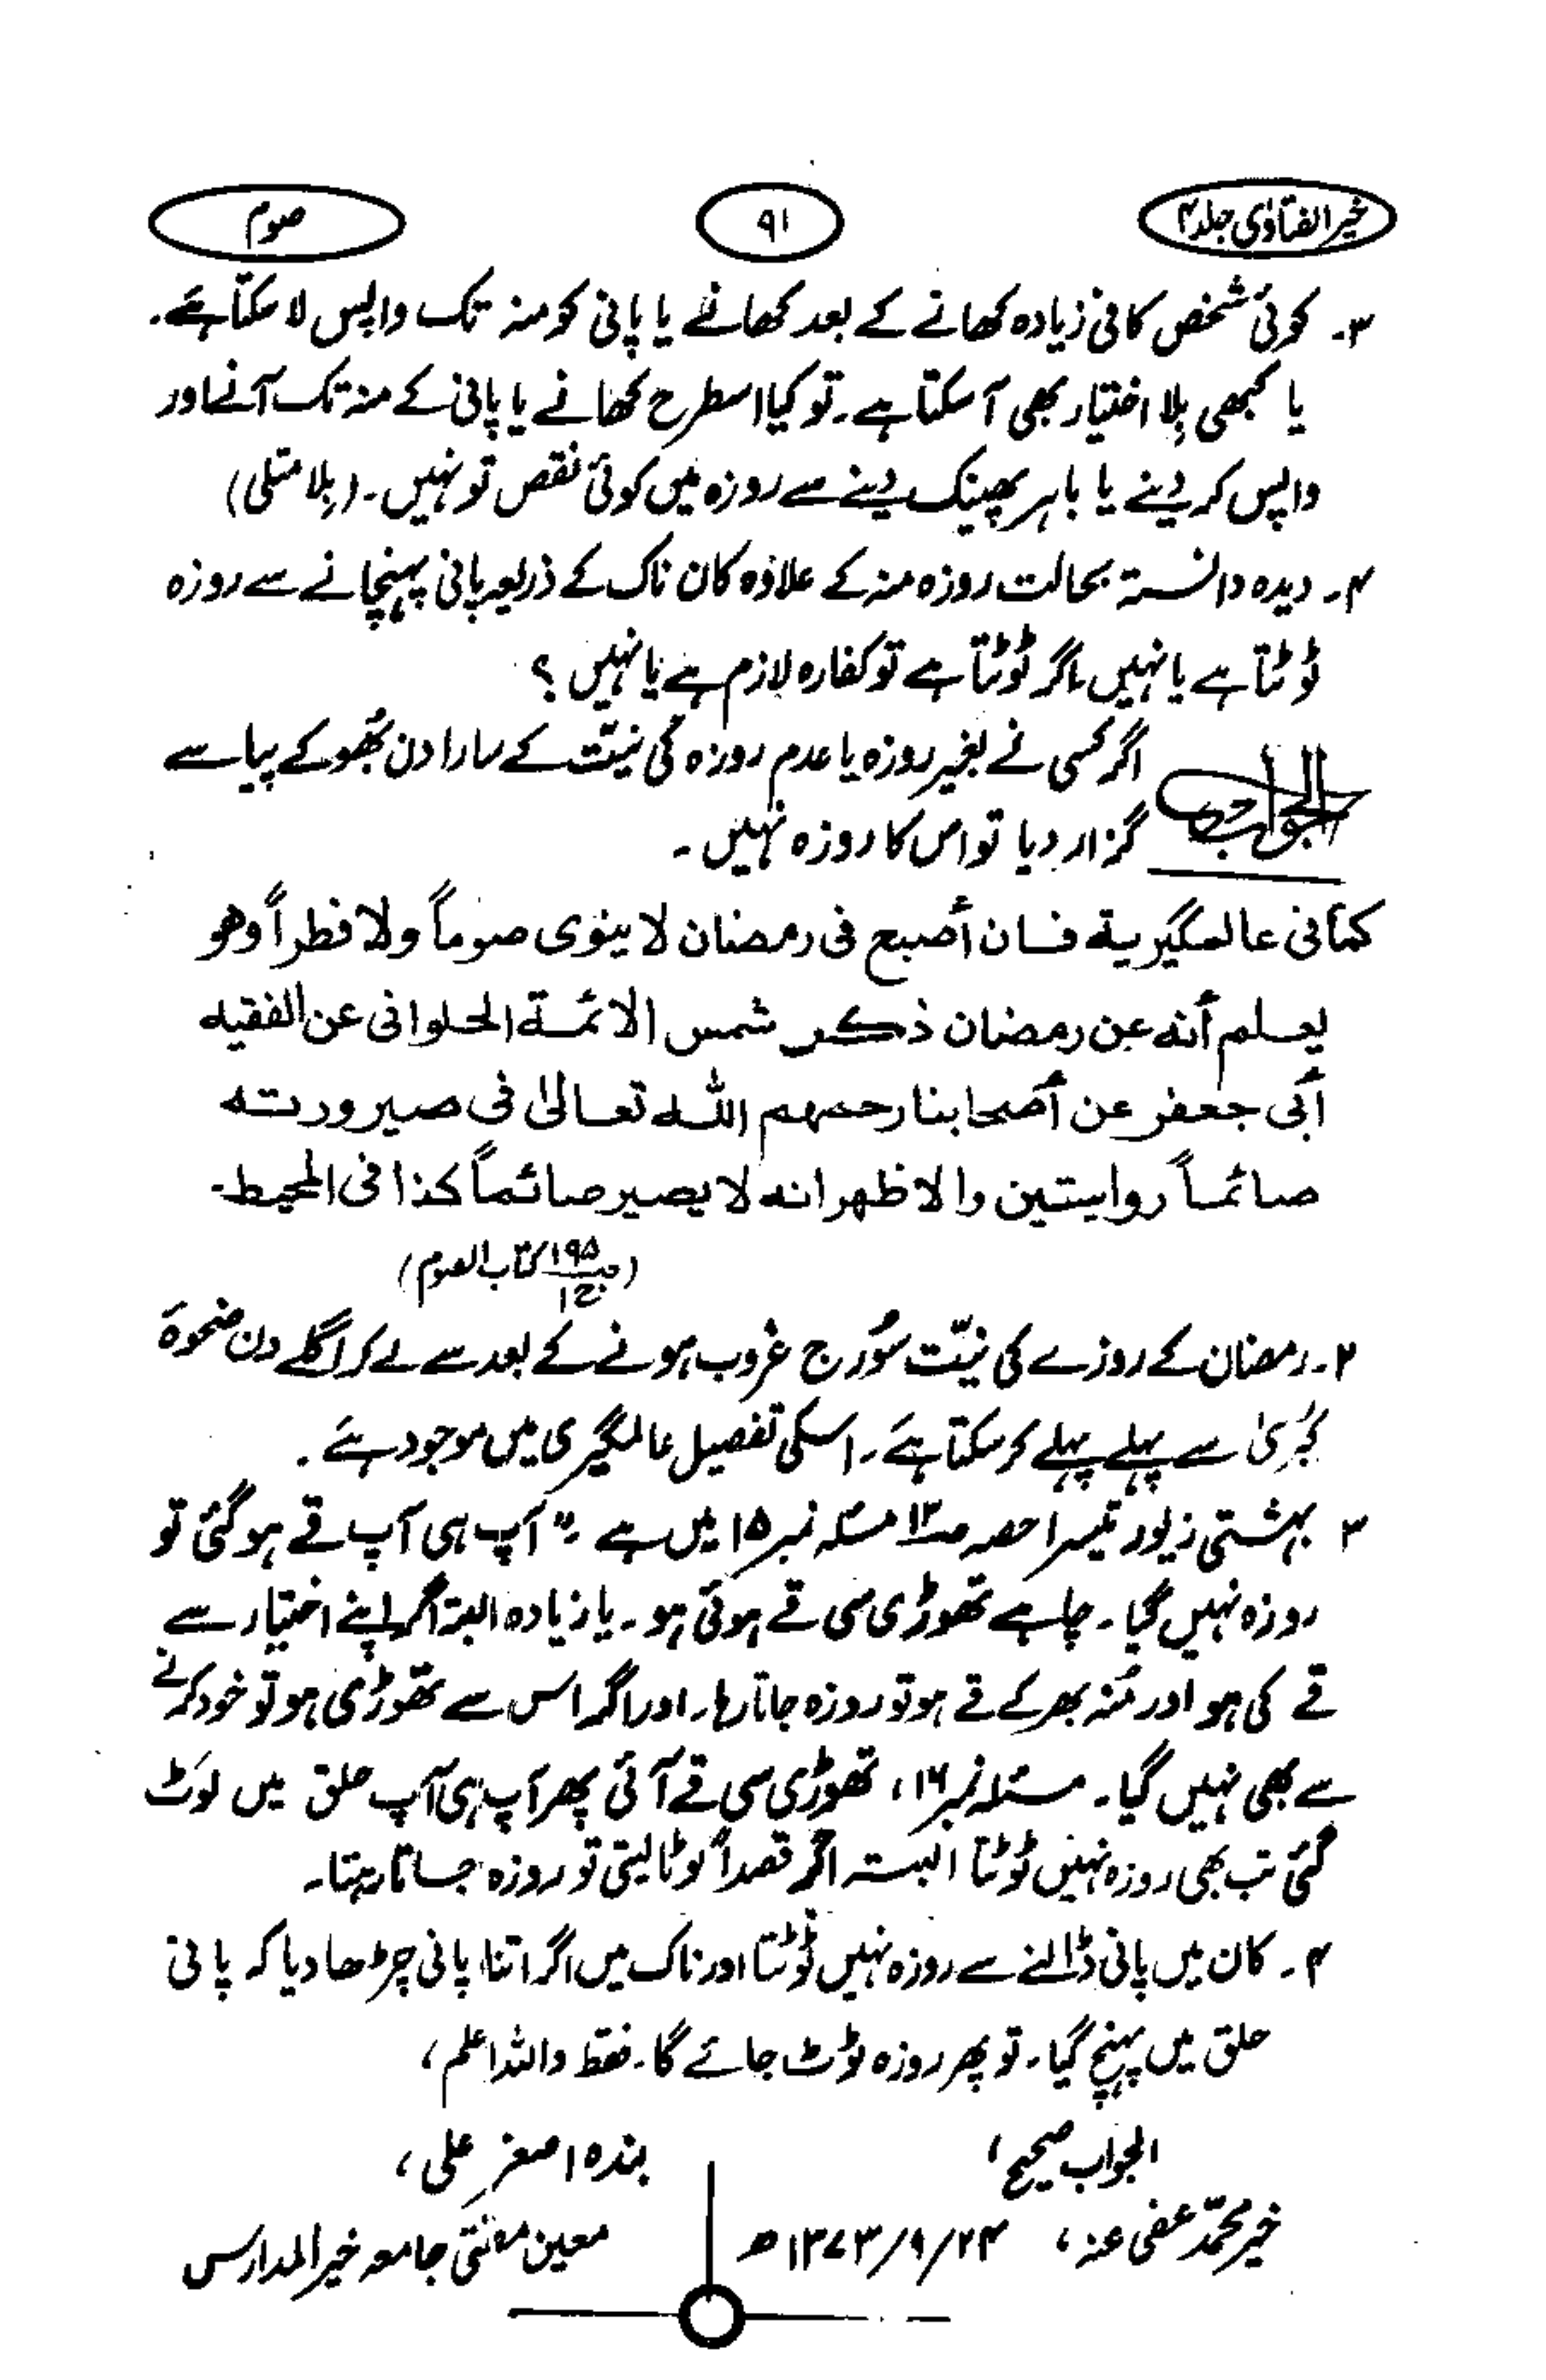 خیر الفتاویٰ جلد ۴
۹۱
صوم
۳۔ کوئی شخص کافی زیادہ کھانے کے بعد کھانے یا پانی کو منہ تک واپس لا سکتا ہے۔
یا کبھی بِلا اختیار بھی آ سکتا ہے۔ تو کیا اسطرح کھانے یا پانی کے منہ تک آنے اور
واپس کر دینے یا باہر پھینک دینے سے روزہ میں کوئی نقص تو نہیں۔ (بِلا متلی)
۴۔ دیدہ دانستہ بحالت روزہ منہ کے علاوہ کان ناک کے ذریعہ پانی پہنچانے سے روزہ
ٹوٹتا ہے یا نہیں اگر ٹوٹتا ہے تو کفارہ لازم ہے یا نہیں ؟
الجواب
اگر کسی نے بغیر روزہ یا عدم روزہ کی نیّت کے سارا دن بھُوکے پیاسے
گزار دیا تو اس کا روزہ نہیں۔
كما فى عالمگيرية فان أصبح فى رمضان لا ينوى صوماً ولا فطراً وهو
يعلم أنه عن رمضان ذكر شمس الائمة الحلوانى عن الفقيه
أبى جعفر عن أصحابنا رحمهم الله تعالىٰ فى صيرورته
صائماً روايتين والاظهر انه لا يصير صائماً كذا فى المحيط۔
(ص۱۹۵ ج۱ کتاب الصوم)
۲۔ رمضان کے روزے کی نیّت سُورج غروب ہونے کے بعد سے لے کر اگلے دن ضحوۃ
کبریٰ سے پہلے پہلے کر سکتا ہے۔ اسکی تفصیل عالمگیری میں موجود ہے۔
۳ بہشتی زیور تیسرا حصہ ص۱۲ مسئلہ نمبر ۱۵ میں ہے ۔" آپ ہی آپ قے ہو گئی تو
روزہ نہیں گیا۔ چاہے تھوڑی سی قے ہوئی ہو۔ یا زیادہ البتہ اگر اپنے اختیار سے
قے کی ہو اور مُنہ بھر کے قے ہو تو روزہ جاتا رہا۔ اور اگر اس سے تھوڑی ہو تو خود کرنے
سے بھی نہیں گیا۔ مسئلہ نمبر ۱۶، تھوڑی سی قے آئی پھر آپ ہی آپ حلق میں لوَٹ
گئی تب بھی روزہ نہیں ٹوٹتا البستہ اگر قصداً لوٹا لیتی تو روزہ جاتا رہتا۔
۴۔ کان میں پانی ڈالنے سے روزہ نہیں ٹوٹتا اور ناک میں اگر اتنا پانی چڑھا دیا کہ پانی
حلق میں پہنچ گیا۔ تو پھر روزہ ٹوٹ جائے گا۔ فقط واللہ اعلم،
الجواب صحیح،
خیر محمّد عفی عنہ، ۲۴/۹/۱۳۷۳ھ
بندہ اصغر علی،
معین مفتی جامعہ خیر المدارس